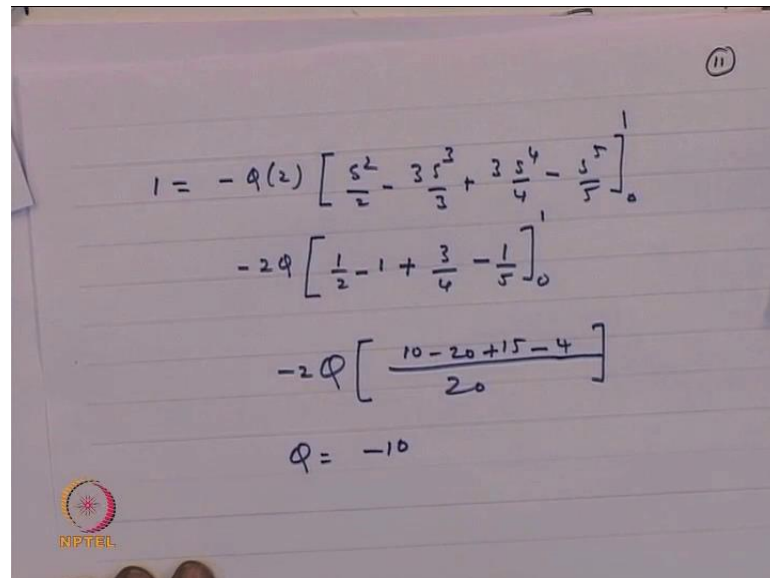 11
1 = - Q(2) [ s²/2 - 3s³/3 + 3s⁴/4 - s⁵/5 ]₀¹
- 2Q [ 1/2 - 1 + 3/4 - 1/5 ]₀¹
- 2Q [ 10 - 20 + 15 - 4 / 20 ]
Q = - 10
NPTEL